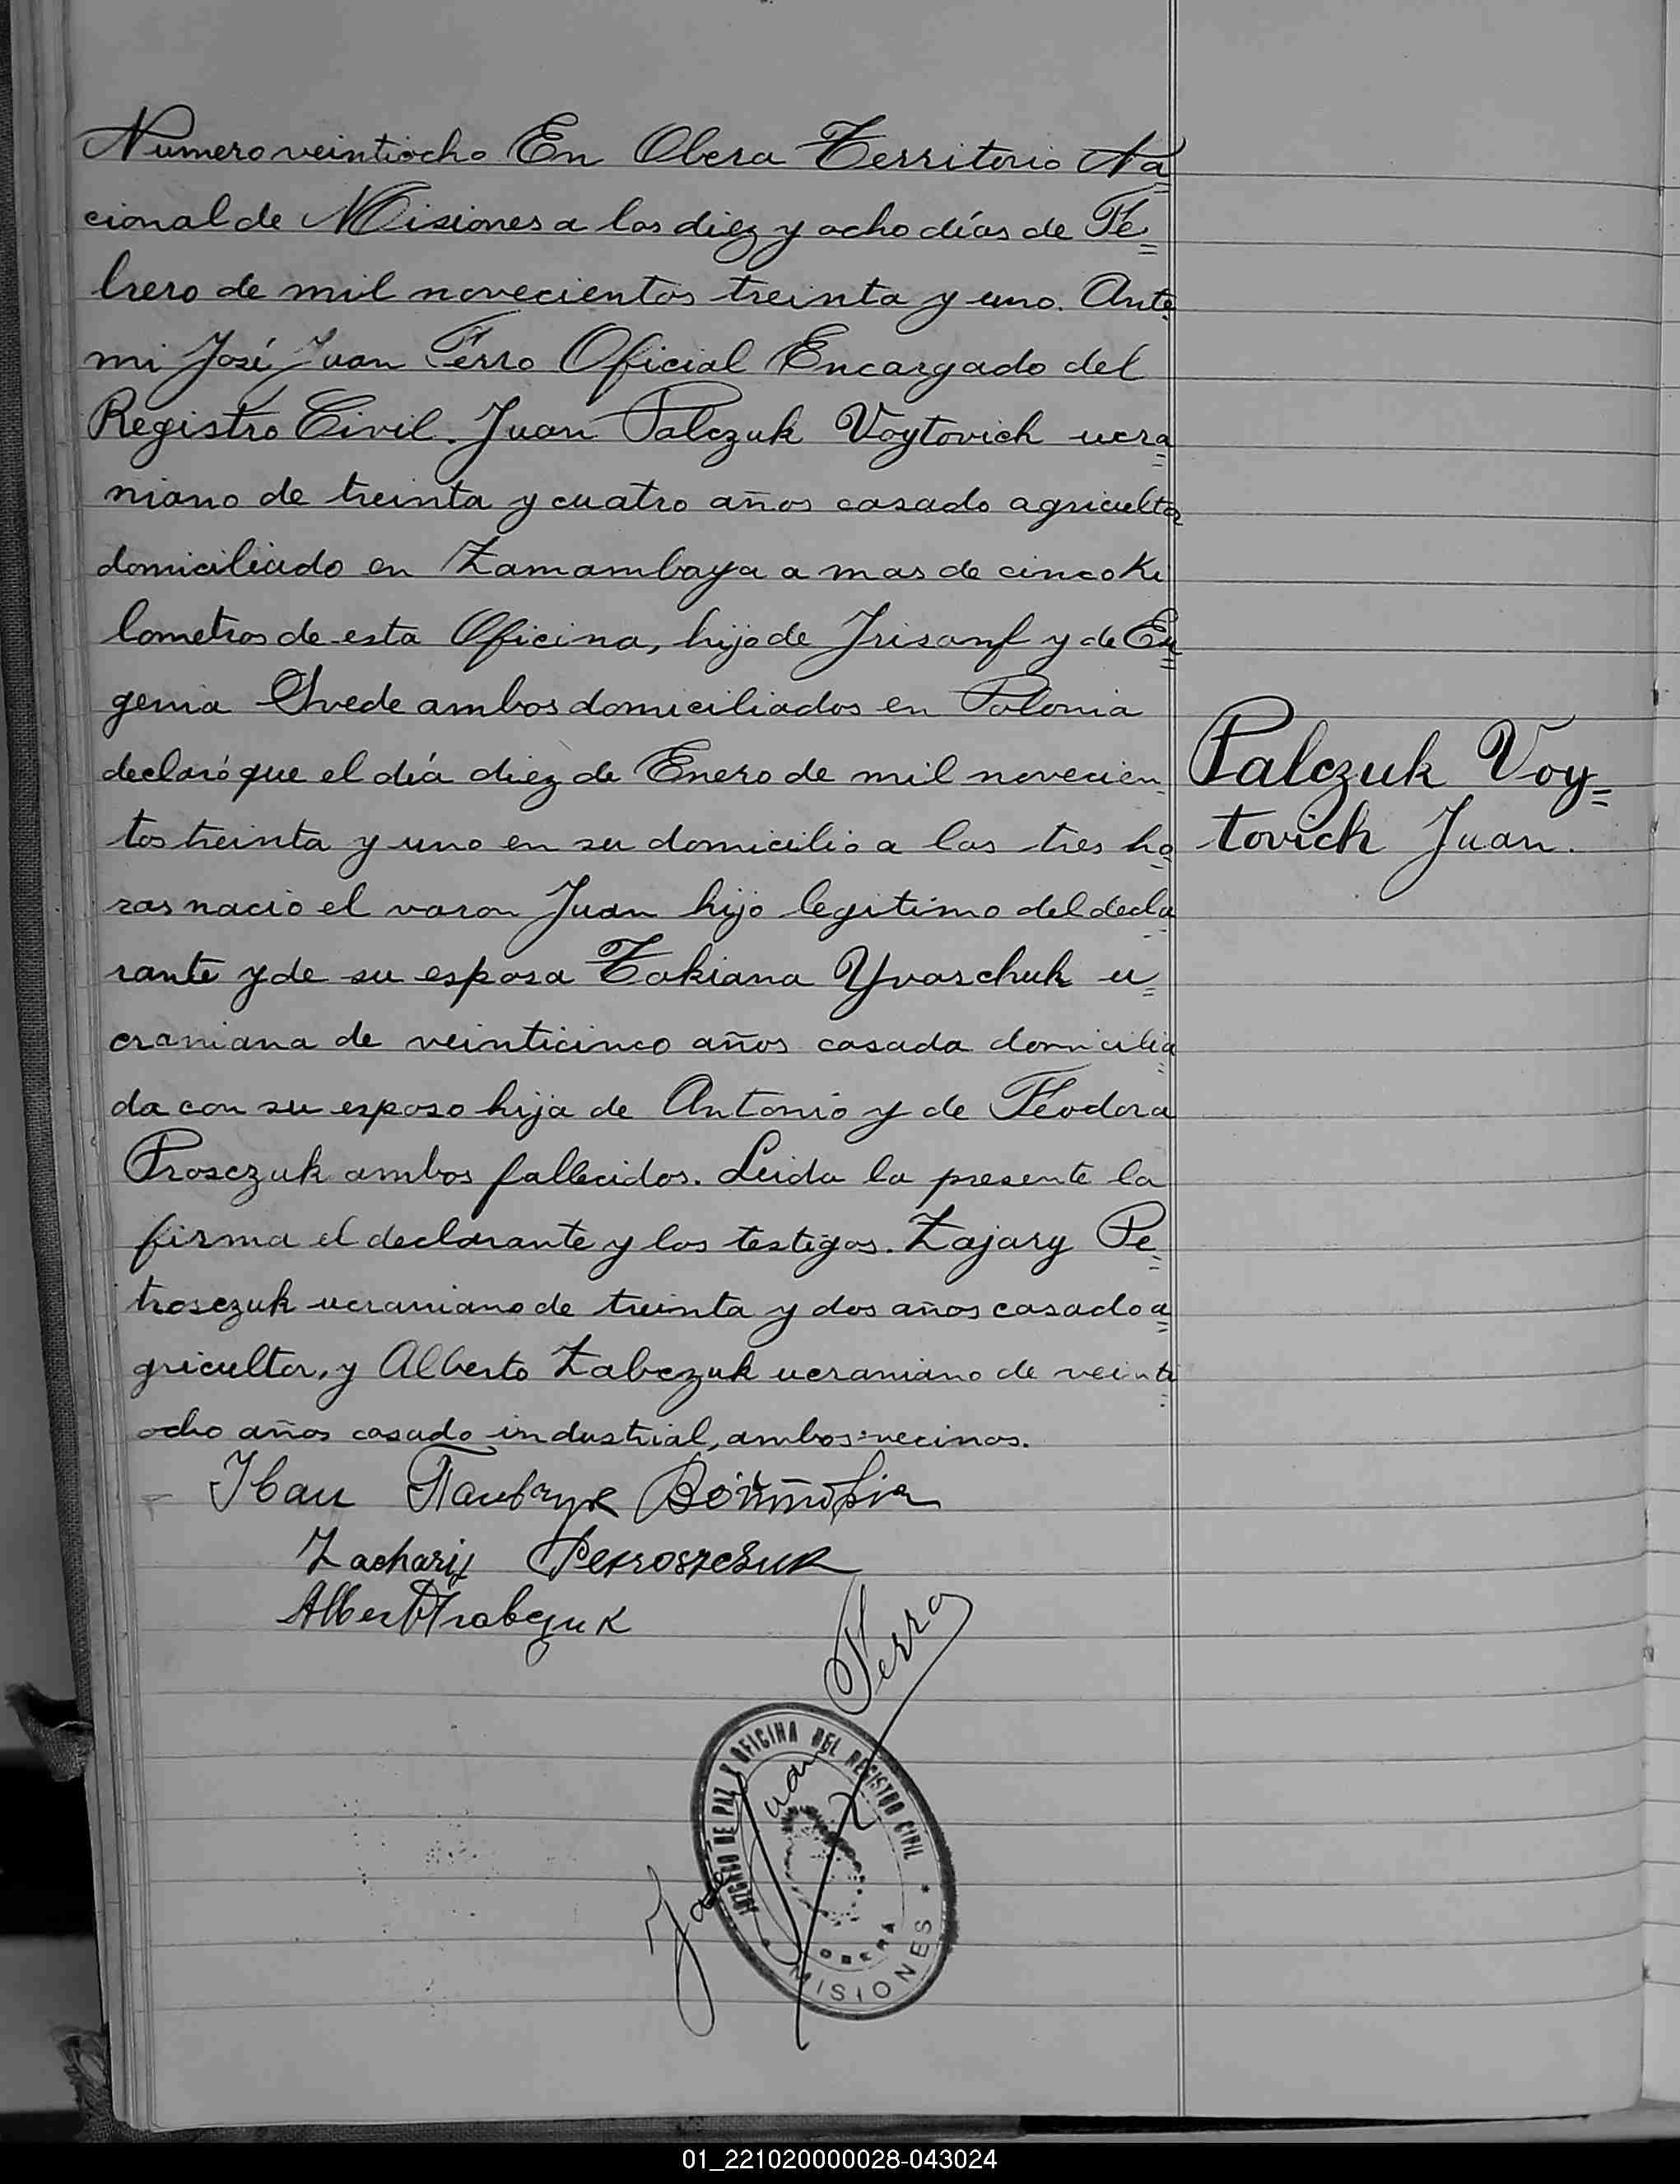 Numero veintiocho En Obera Territorio Na=
cional de Misiones a los diez y ocho días de Fe=
brero de mil novecientos treinta y uno. Ante
mi José Juan Ferro Oficial Encargado del
Registro Civil. Juan Palczuk Voytovich ucra=
niano de treinta y cuatro años casado agricultor
domiciliado en Zamambaya a mas de cinco Ki
lometros de esta Oficina, hijo de Jrisanf y de Eu=
genia Shvede ambos domiciliados en Polonia
declaró que el día diez de Enero de mil novecien=
tos treinta y uno en su domicilio a las tres ho=
ras nacio el varon Juan hijo legitimo del decla=
rante y de su esposa Takiana Yvaschuk u=
craniana de veinticinco años casada domicilia=
da con su esposo hija de Antonio y de Feodora
Prosczuk ambos fallecidos. Leida la presente la
firma el declarante y los testigos. Zajary Pe=
trosczuk ucraniano de treinta y dos años casado a=
gricultor, y Alberto Zabczuk ucraniano de veinti=
ocho años casado industrial, ambos vecinos.
Palczuk Voy=
tovich Juan.
Zacharij Petroszczuk
Albert
José Juan Ferro
JUZGADO DE PAZ Y OFICINA DEL REGISTRO CIVIL
OBERA
MISIONES
01_221020000028-043024